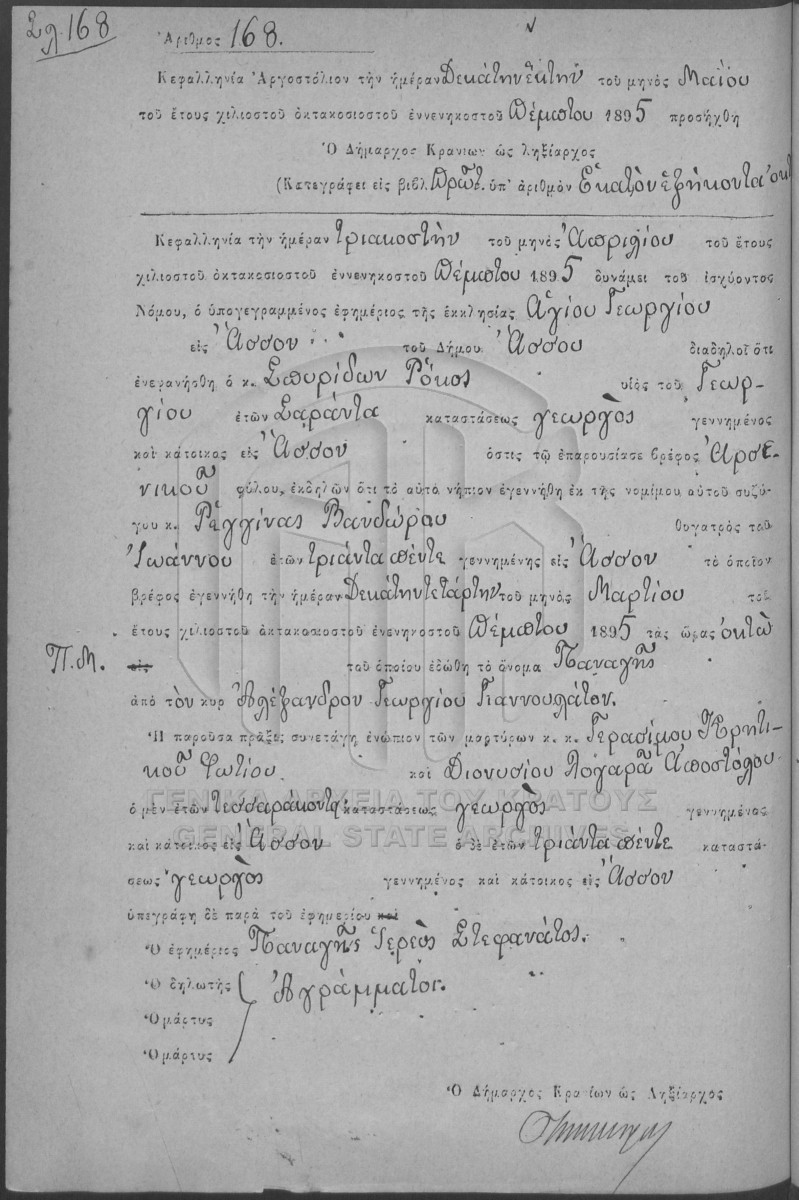 Σλ 168
Ἀριθμος 168.
Κεφαλληνία Ἀργοστόλιον τὴν ἡμέραν Δεκάτην ἕκτην τοῦ μηνὸς Μαΐου
τοῦ ἔτους χιλιοστοῦ ὀκτακοσιοστοῦ ἐννενηκοστοῦ Πέμπτου 1895 προσήχθη
Ὁ Δήμαρχος Κρανίων ὡς ληξίαρχος
(Κατεγράφει εἰς βιβλ. Πρῶτ. ὑπ' ἀριθμὸν Ἑκατὸν ἑξήκοντα ὀκτ
Κεφαλληνία τὴν ἡμέραν τριακοστὴν τοῦ μηνὸς Ἀπριλίου τοῦ ἔτους
χιλιοστοῦ ὀκτακοσιοστοῦ ἐννενηκοστοῦ Πέμπτου 1895 δυνάμει τοῦ ἰσχύοντος
Νόμου, ὁ ὑπογεγραμμένος ἐφημέριος τῆς ἐκκλησίας Ἁγίου Γεωργίου
εἰς Ἄσσον τοῦ Δήμου Ἄσσου διαδηλοῖ ὅτι
ἐνεφανήσθη ὁ κ. Σπυρίδων Ρόκος υἱὸς τοῦ Γεωρ-
γίου ἐτῶν Σαράντα καταστάσεως γεωργὸς γεννημένος
καὶ κάτοικος εἰς Ἄσσον ὅστις τῷ ἐπαρουσίασε βρέφος Ἀρσε-
νικοῦ φύλου, ἐκδηλῶν ὅτι τὸ αὐτὸ νήπιον ἐγεννήθη ἐκ τῆς νομίμου αὐτοῦ συζύ-
γου κ. Ρεγγίνας Βανδώρου θυγατρὸς τοῦ
Ἰωάννου ἐτῶν τριάντα πέντε γεννημένης εἰς Ἄσσον τὸ ὁποῖον
βρέφος ἐγεννήθη τὴν ἡμέραν Δεκάτην τετάρτην τοῦ μηνὸς Μαρτίου τοῦ
ἔτους χιλιοστοῦ ὀκτακοσιοστοῦ ἐνενηκοστοῦ Πέμπτου 1895 τὰς ὥρας ὀκτὼ
Π.Μ. εἰς τοῦ ὁποίου ἐδώθη τὸ ὄνομα Παναγῆς
ἀπὸ τὸν κυρ Ἀλέξανδρον Γεωργίου Γιαννουλάτον.
Ἡ παροῦσα πρᾶξις συνετάγη ἐνώπιον τῶν μαρτύρων κ. κ. Γερασίμου Κρητι-
κοῦ Φωτίου καὶ Διονυσίου Λογαρᾶ Ἀποστόλου
ὁ μὲν ἐτῶν τεσσαράκοντα καταστάσεως γεωργὸς γεννημένος
ΓΕΝΙΚΑ ΑΡΧΕΙΑ ΤΟΥ ΚΡΑΤΟΥΣ
GENERAL STATE ARCHIVES
καὶ κάτοικος εἰς Ἄσσον ὁ δὲ ἐτῶν τριάντα πέντε καταστά-
σεως γεωργὸς γεννημένος καὶ κάτοικος εἰς Ἄσσον
ὑπεγράφη δὲ παρὰ τοῦ ἐφημερίου καὶ
Ὁ ἐφημέριος Παναγῆς Ἱερεὺς Στεφανάτος.
Ὁ δηλωτὴς Ἀγράμματοι.
Ὁ μάρτυς
Ὁ μάρτυς
Ὁ Δήμαρχος Κρανίων ὡς Ληξίαρχος